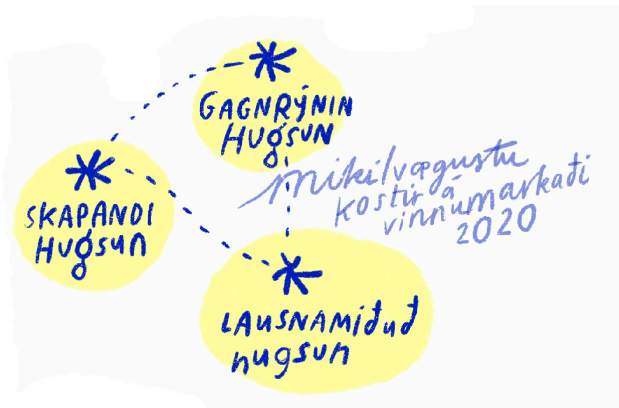 GAGNRÝNIN
HUgSUN
SKAPANDI
HUgsun
mikilvægustu
kostir á
vinnumarkaði
2020
LAUSNAMiðuð
hugsun